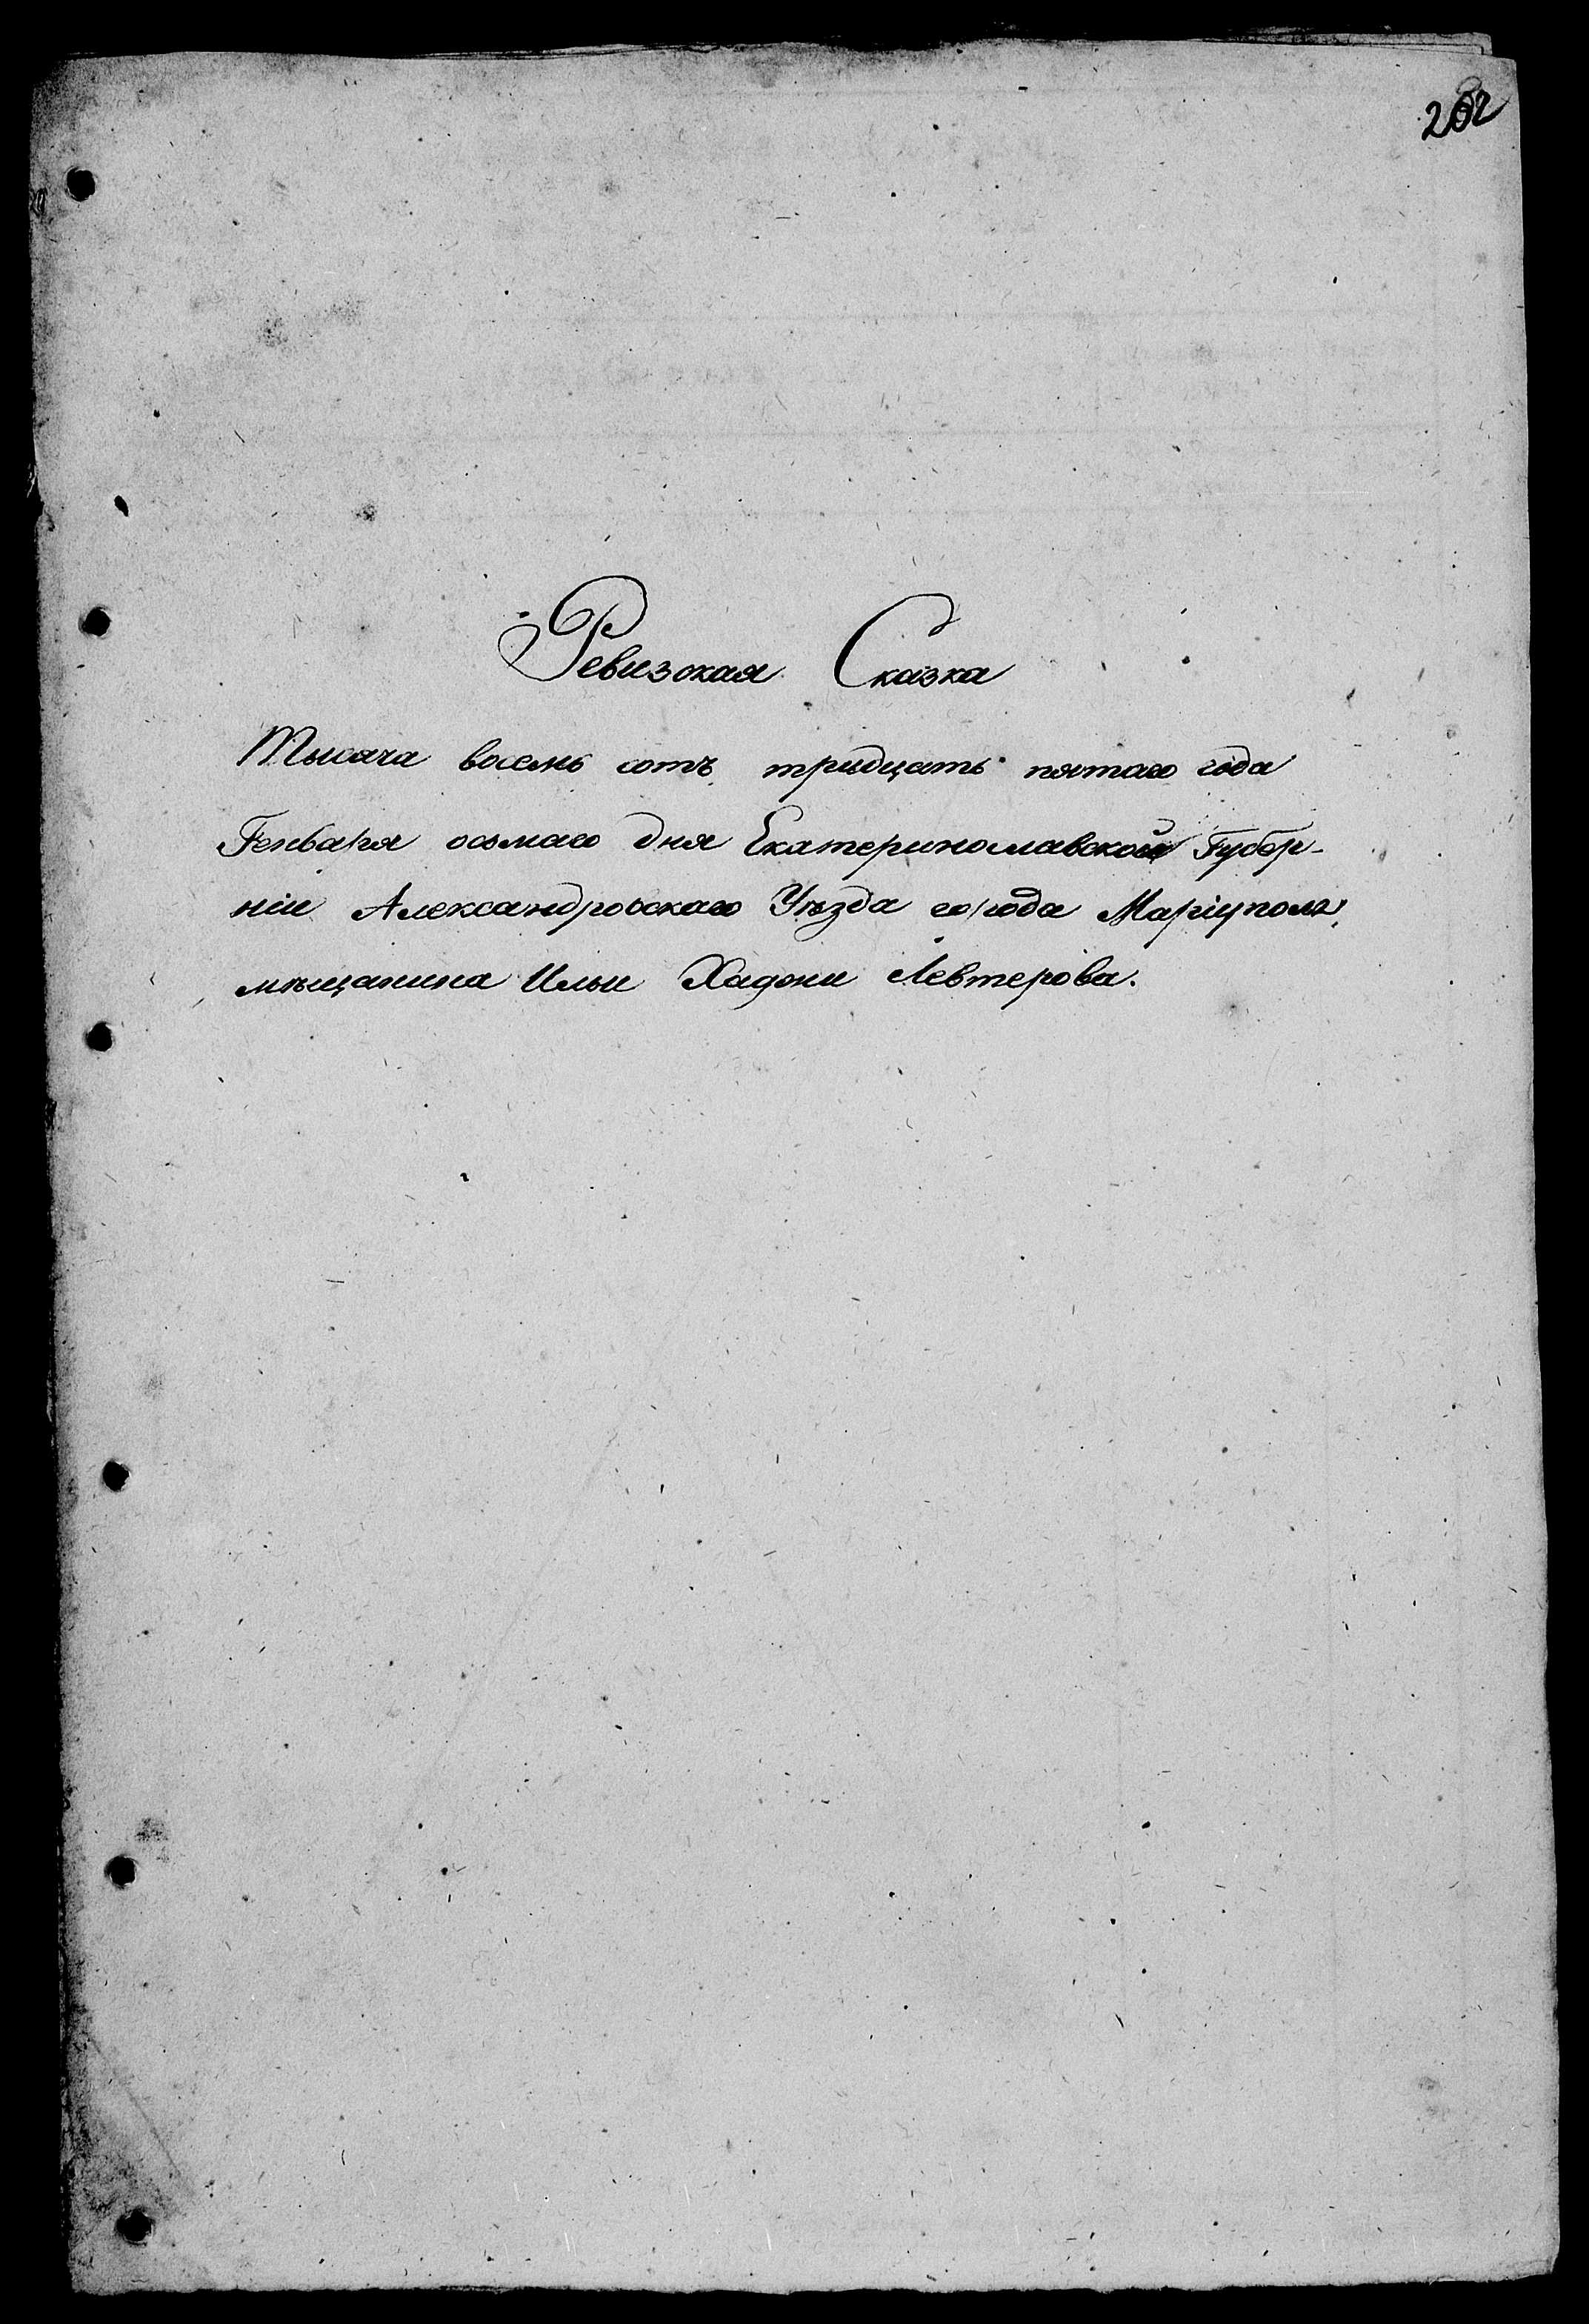 Ревизская Сказка
Тысяча восемь сотъ тридцать пятаго года
Генваря осьмаго дня Екатеринославской Губер-
ніи Александровскаго Уѣзда города Маріуполя,
мѣщанина Ильи Хаджи Левтерова.